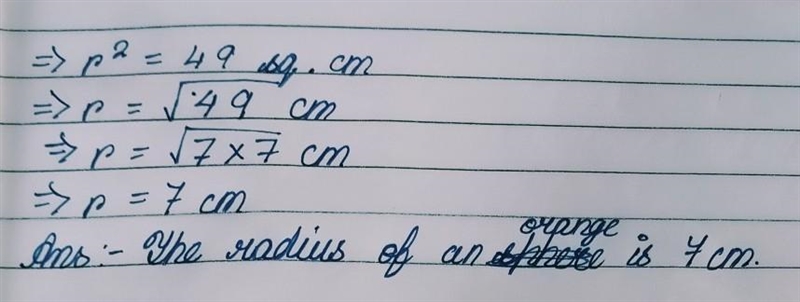 ⇒ r² = 49 sq. cm
⇒ r = √49 cm
⇒ r = √7×7 cm
⇒ r = 7 cm
Ans:- The radius of an orange is 7 cm.